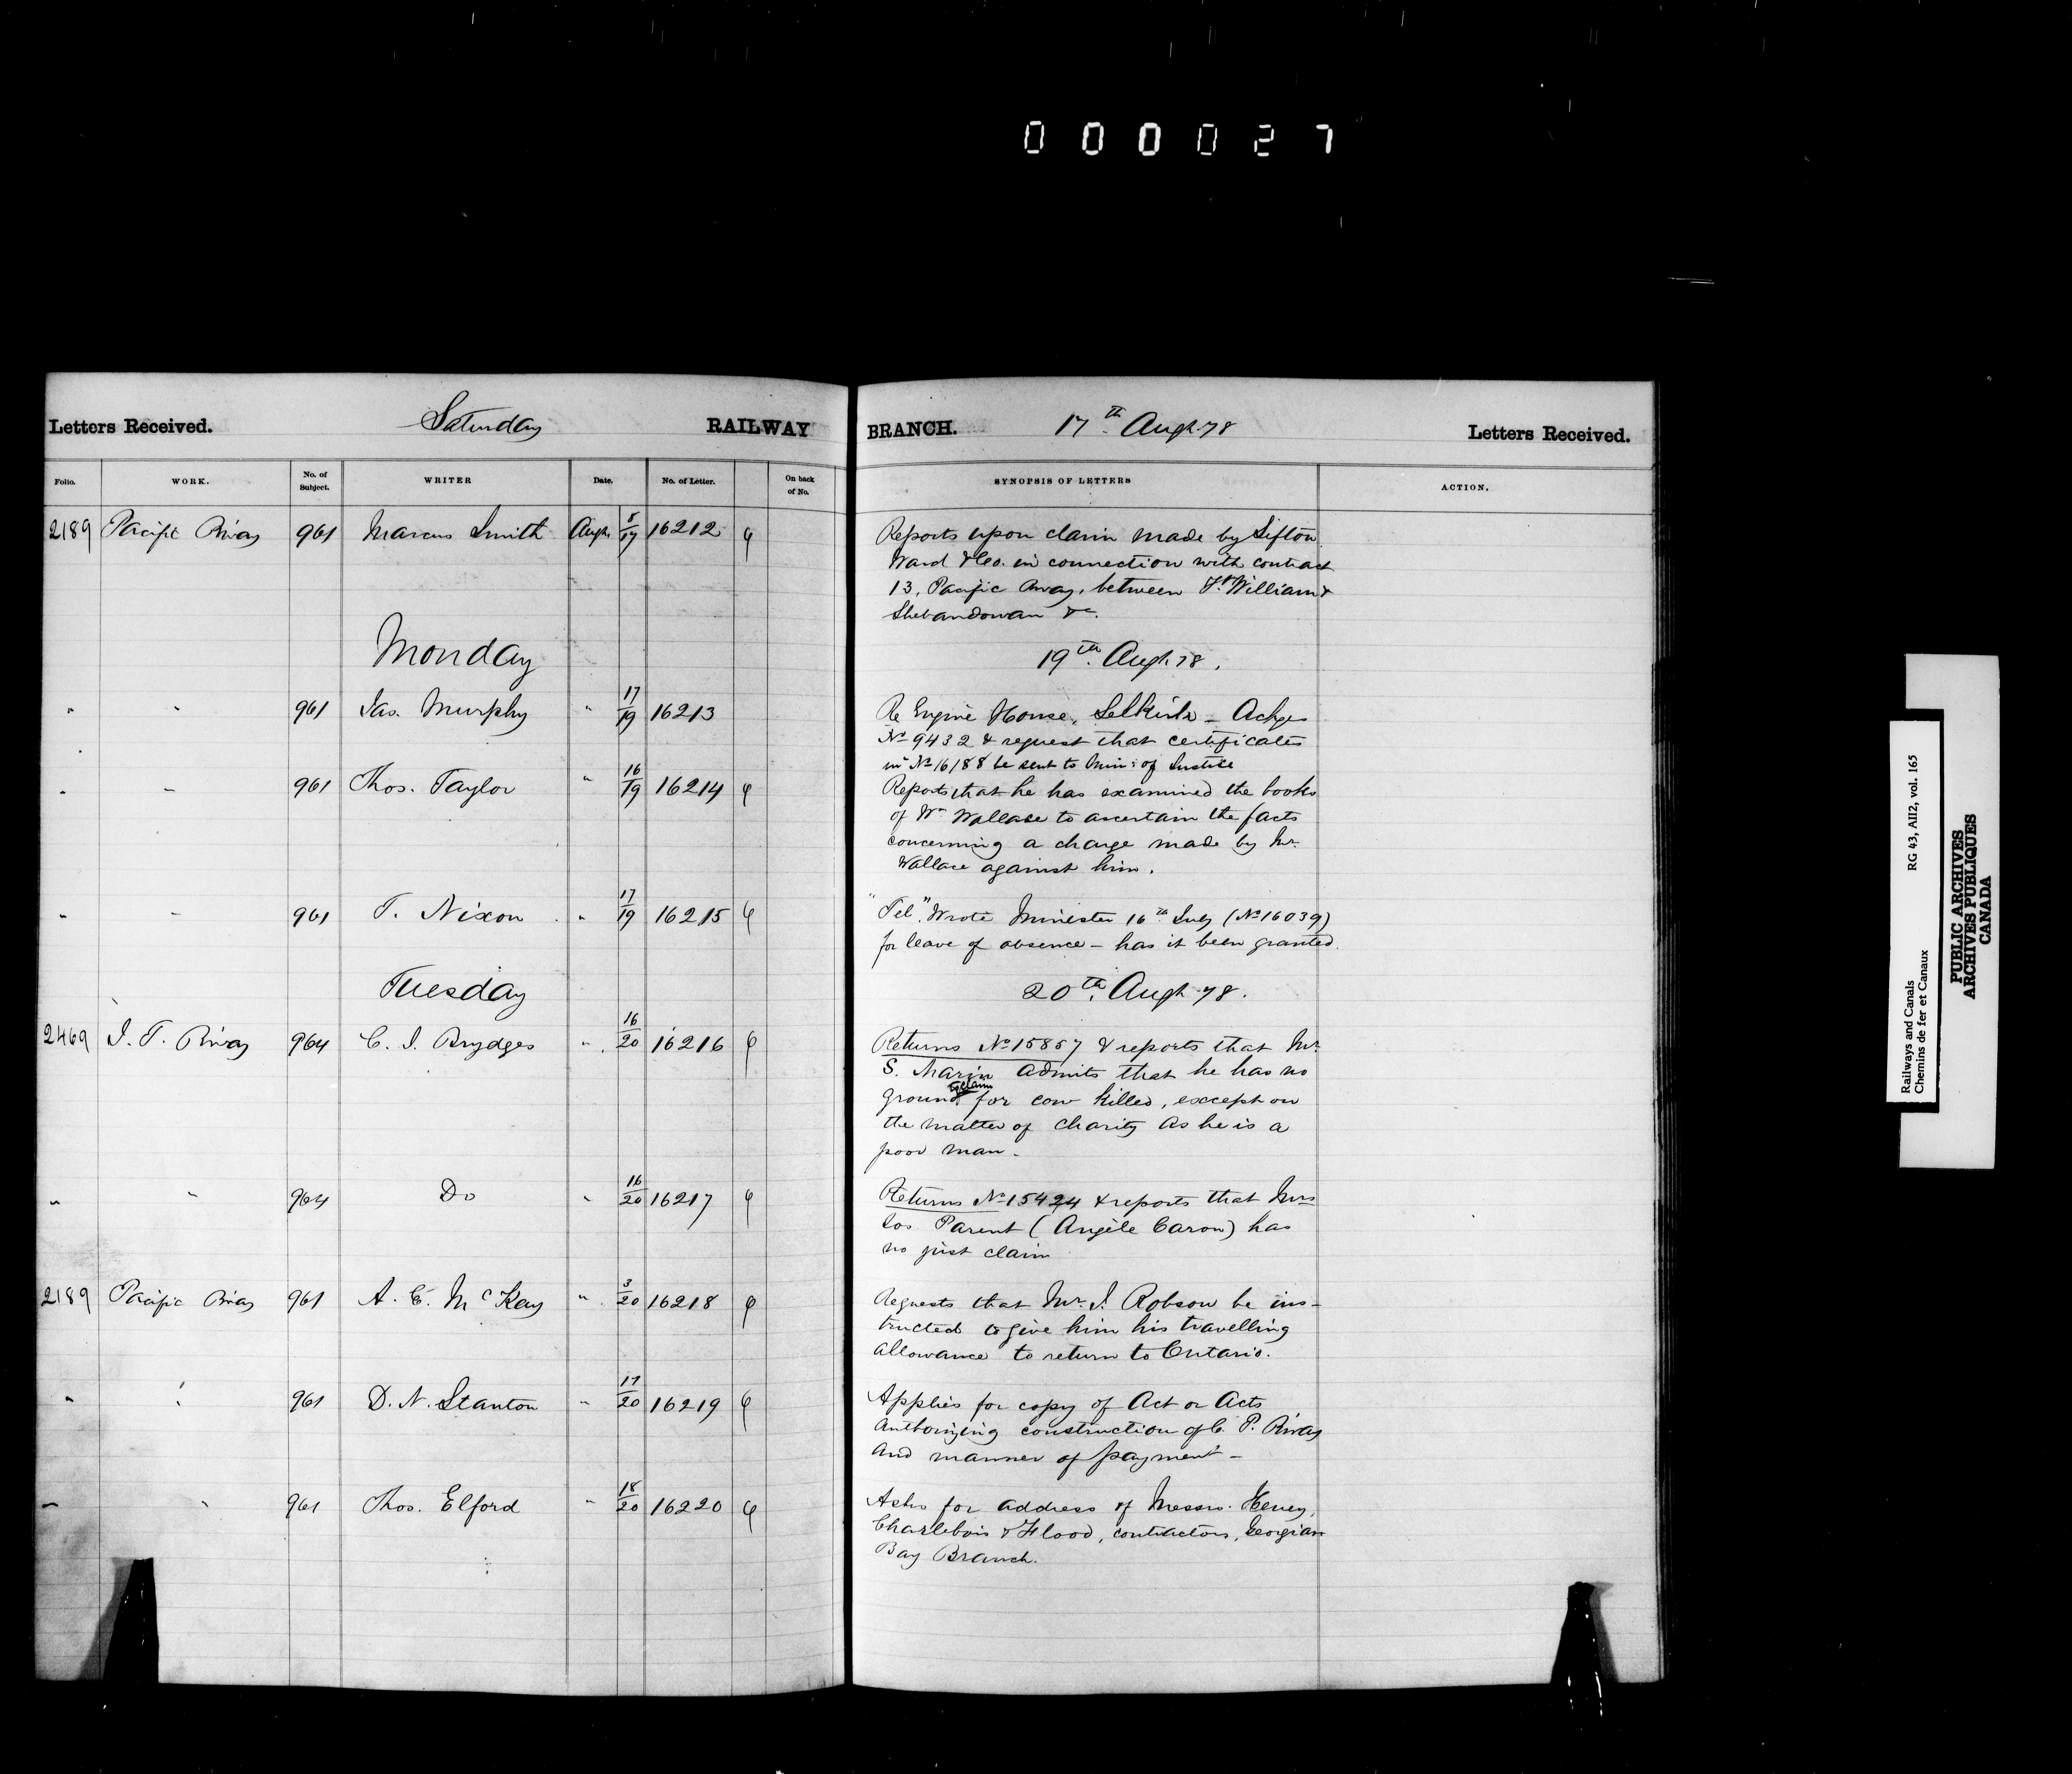 000027
Letters Received. Saturday RAILWAY BRANCH. 17th Augt. 78 Letters Received.
Folio. WORK. No. of Subject. WRITER Date. No. of Letter. On back of No. SYNOPSIS OF LETTERS ACTION.
2189 Pacific Rway 961 Marcus Smith Augt. 5/17 16212 Reports upon claim made by Sifton
Ward & Co. in connection with contract
13, Pacific Rway, between Ft. William &
Shebandowan &c.
Monday 19th Augt. 78.
" " 961 Jas. Murphy " 17/19 16213 Re Engine House, Selkirk - Ackges
No 9432 & request that certificates
in No 16188 be sent to Min: of Justice
" " 961 Thos. Taylor " 16/19 16214 Reports that he has examined the books
of Wm Wallace to ascertain the facts
concerning a charge made by Mr.
Wallace against him.
" " 961 T. Nixon " 17/19 16215 "Tel". Wrote Minister 16th July (No 16039)
for leave of absence - has it been granted
Tuesday 20th. Augt. 78.
2469 I. T. Rway 964 C. J. Brydges " 16/20 16216 Returns No 15857 & reports that Mr.
S. Marin admits that he has no
ground to claim for cow killed, except on
the matter of charity as he is a
poor man.
" " 964 Do " 16/20 16217 Returns No 15424 & reports that Mrs
Jos. Parent (Angèle Caron) has
no just claim
2189 Pacific Rway 961 A. C. McKay " 3/20 16218 Requests that Mr. J. Robson be ins-
tructed to give him his travelling
allowance to return to Ontario.
" " 961 D. N. Stanton " 17/20 16219 Applies for copy of Act or Acts
authorizing construction of C. P. Rway
and manner of payment -
" " 961 Thos. Elford " 18/20 16220 Asks for address of Messrs. Heney,
Charlebois & Flood, contractors, Georgian
Bay Branch.
Railways and Canals RG 43, AII2, vol. 165
Chemins de fer et Canaux
PUBLIC ARCHIVES
ARCHIVES PUBLIQUES
CANADA